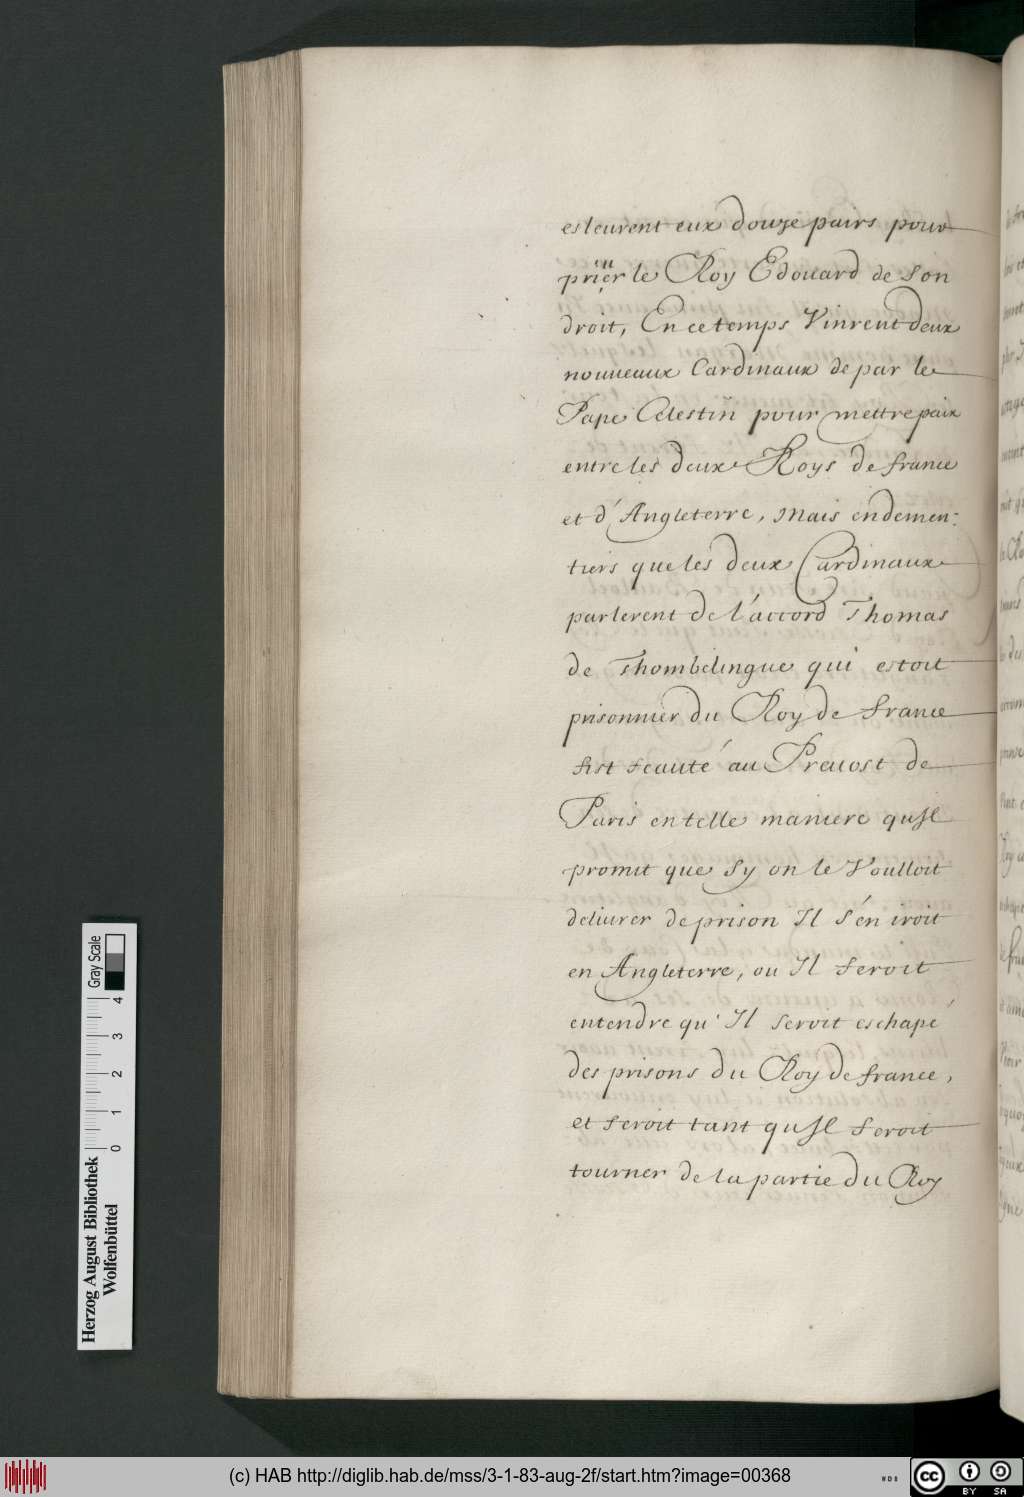 esleurent eux douze pairs pour
priuer le Roy Edouard de son
droit, En ce temps Vinrent deux
nouueaux Cardinaux de par le
Pape Celestin pour mettre paix
entre les deux Roys de france
et d'Angleterre, Mais endemen-
tiers que les deux Cardinaux
parlerent de l'accord Thomas
de Thombelingue qui estoit
prisonnier du Roy de france
fist feauté au Preuost de
Paris en telle maniere qu'Il
promit que sy on le Voulloit
deliurer de prison Il s'en iroit
en Angleterre, ou Il feroit
entendre qu'Il seroit eschapé
des prisons du Roy de france,
et feroit tant qu'Il feroit
tourner de la partie du Roy
Gray Scale
0 1 2 3 4
Herzog August Bibliothek
Wolfenbüttel
(c) HAB http://diglib.hab.de/mss/3-1-83-aug-2f/start.htm?image=00368
WDB
cc
BY SA